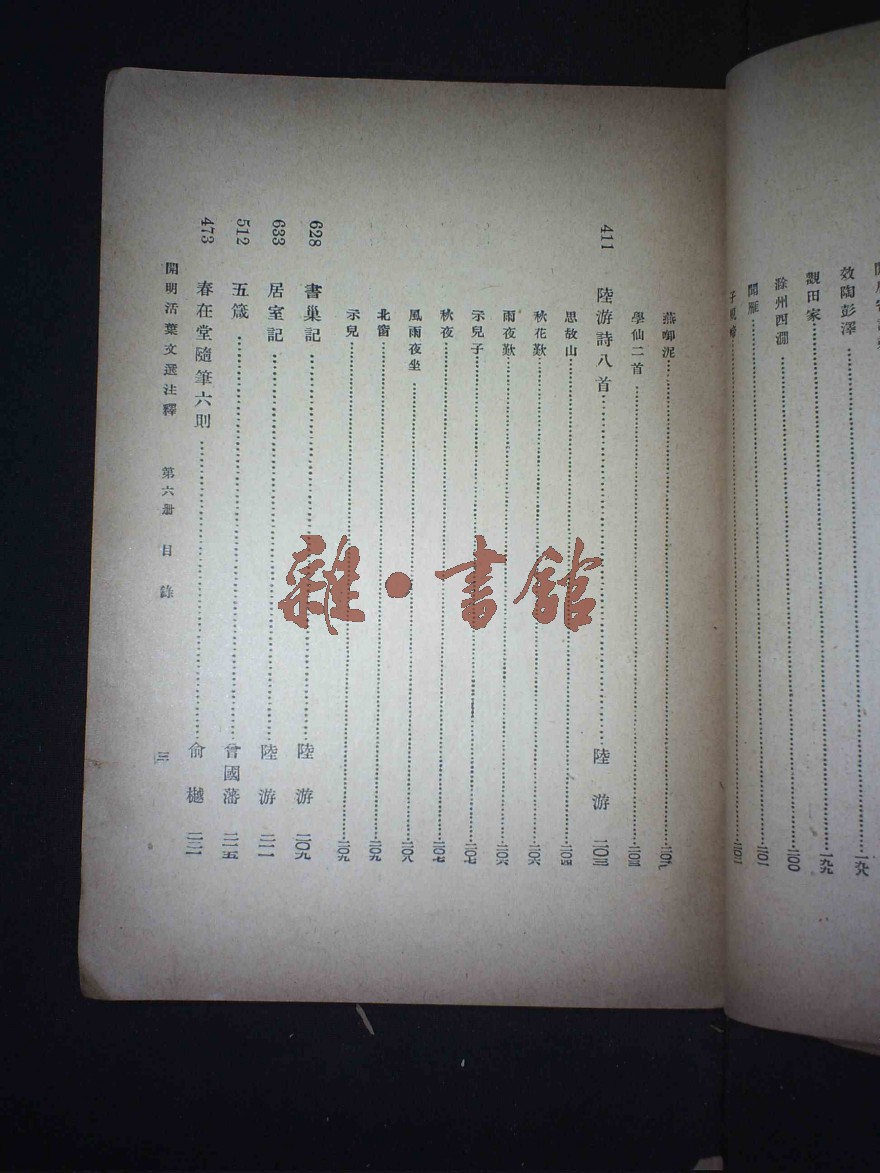 效陶彭澤……一九八
觀田家……一九九
滁州西澗……二〇〇
聞雁……二〇一
燕啣泥
學仙二首……二〇三
411 陸游詩八首……陸游 二〇三
思故山……二〇四
秋花歎……二〇六
雨夜歎……二〇六
示兒子……二〇七
秋夜……二〇七
風雨夜坐……二〇八
北窗……二〇九
示兒……二〇九
628 書巢記……陸游 二〇九
633 居室記……陸游 二一一
512 五箴……曾國藩 二一五
473 春在堂隨筆六則……俞樾
開明活葉文選注釋 第六册 目錄 三
雜·書館